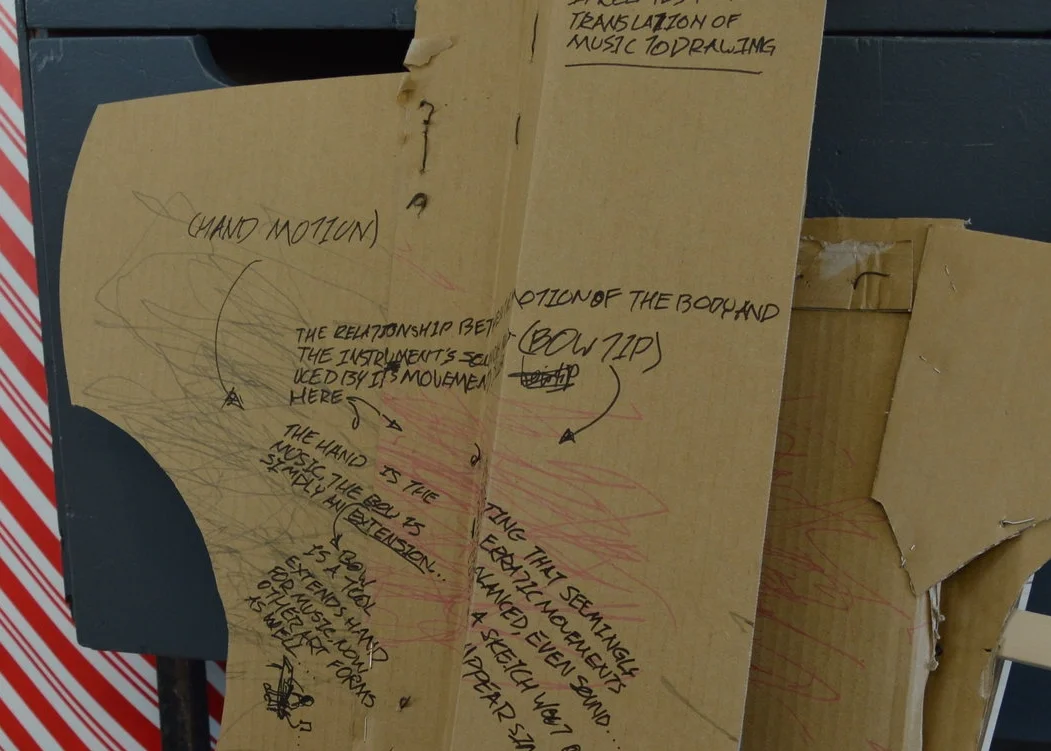 TRANSLATION OF
MUSIC TO DRAWING
(HAND MOTION)
OTION OF THE BODY AND
THE RELATIONSHIP BET
(BOW TIP)
THE INSTRUMENT'S SOUN
UCED BY ITS MOVEMEN
HERE
THE HAND IS THE
MUSIC, THE BOW IS
SIMPLY AN EXTENSION...
BOW
IS A TOOL
EXTENDS HAND
FOR MUSIC, NOW
OTHER ART FORMS
AS WELL...
TING THAT SEEMINGLY
ERRATIC MOVEMENTS
NANCED, EVEN SOUND...
A SKETCH WON'T
PPEAR SIM